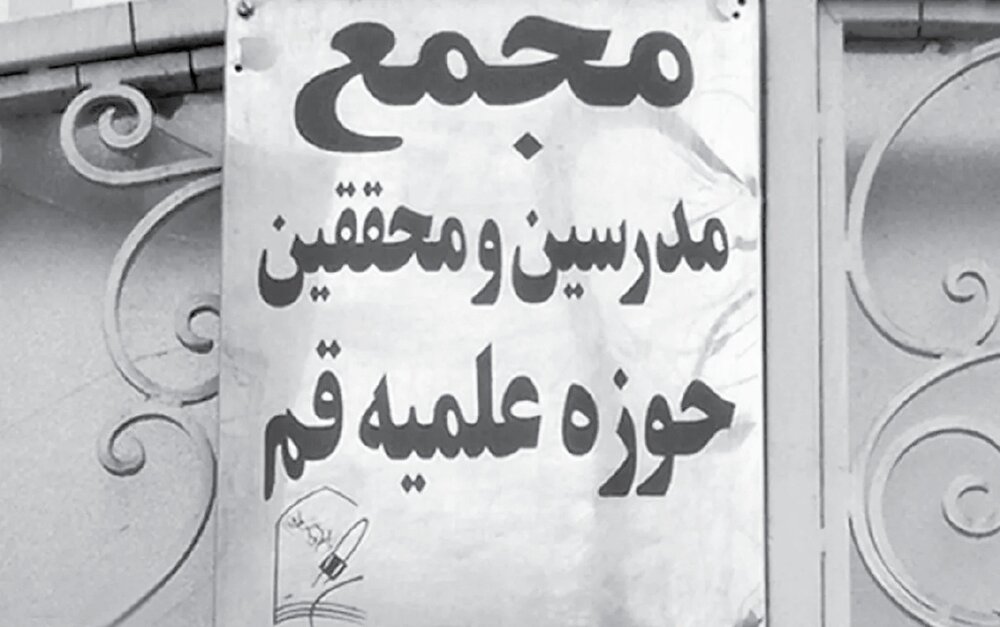 مجمع
مدرسین و محققین
حوزه علمیه قم